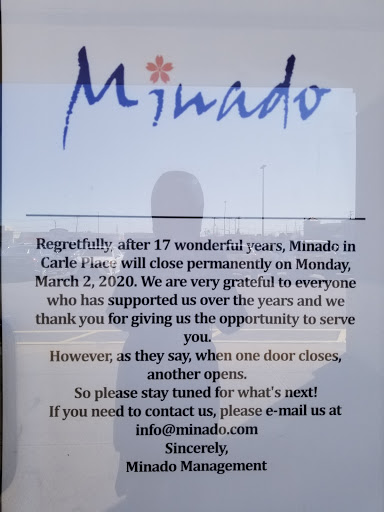 Minado
Regretfully, after 17 wonderful years, Minado in
Carle Place will close permanently on Monday,
March 2, 2020. We are very grateful to everyone
who has supported us over the years and we
thank you for giving us the opportunity to serve
you.
However, as they say, when one door closes,
another opens.
So please stay tuned for what's next!
If you need to contact us, please e-mail us at
info@minado.com
Sincerely,
Minado Management